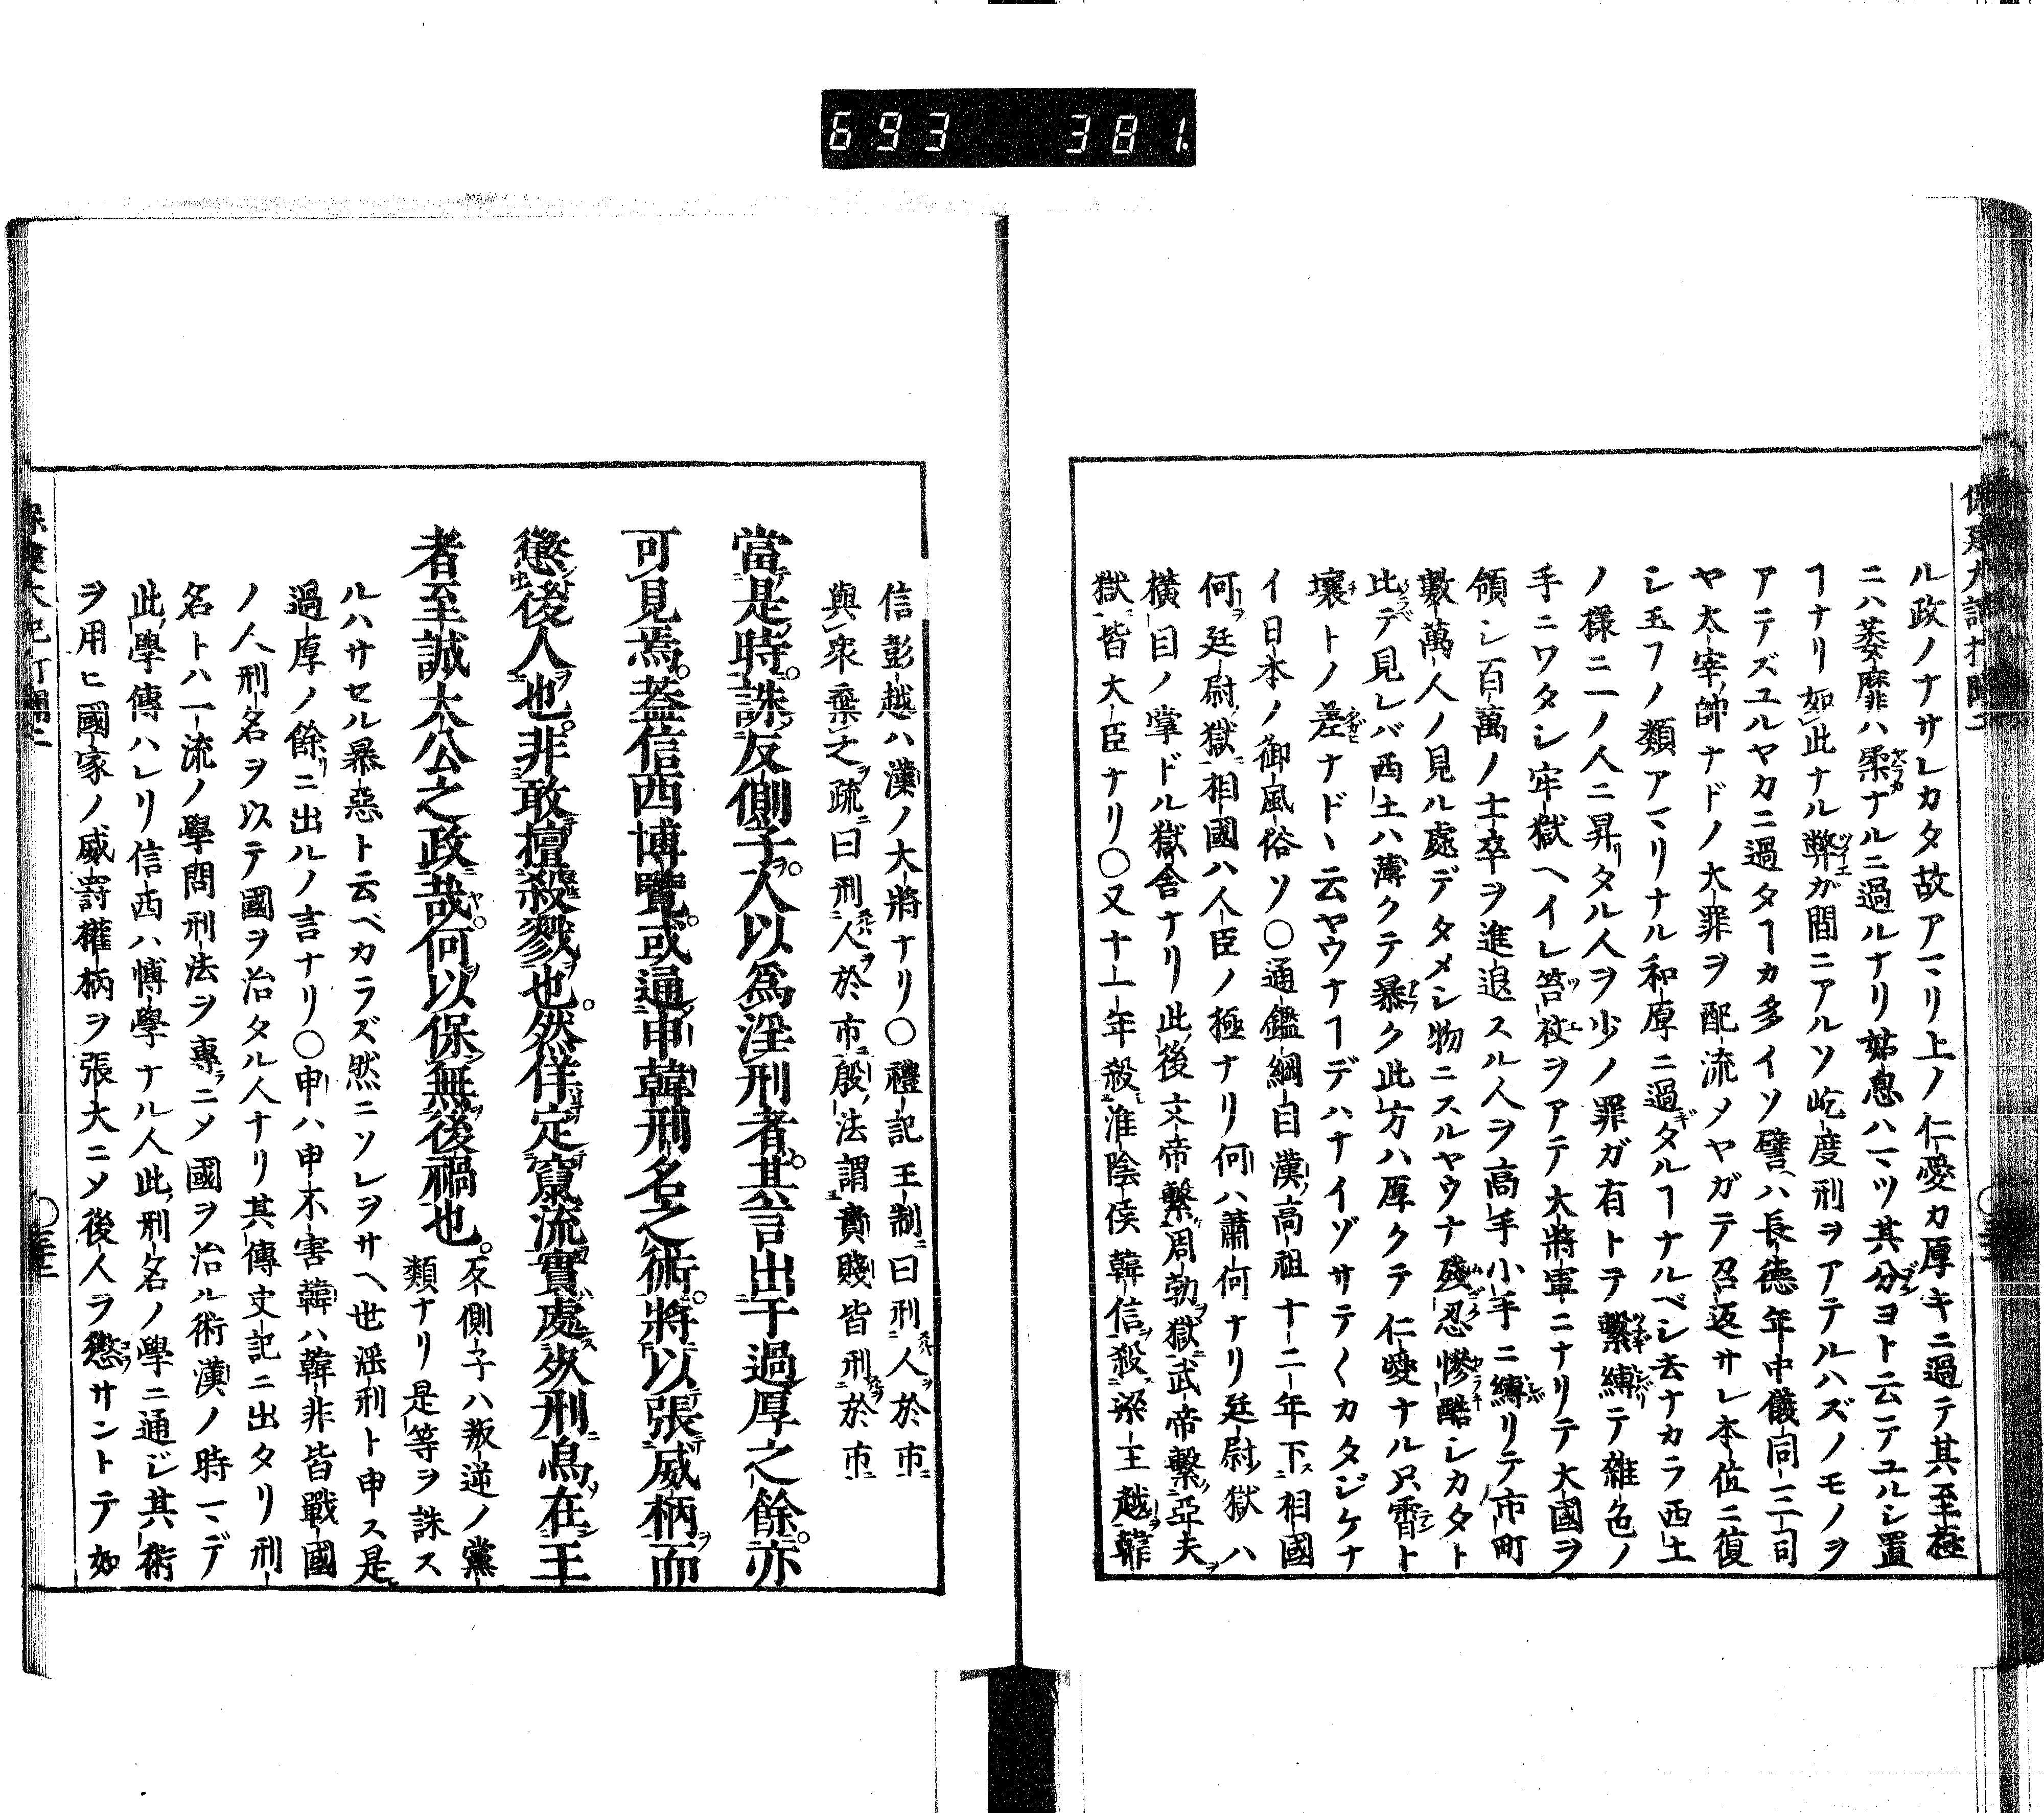 693 381.
ル政ノナサレカタ故アマリ上ノ仁愛カ厚キニ過テ其至極
ニハ萎靡ハ柔ナルニ過ルナリ姑息ハマツ其分ヨト云テユルシ置
ヿナリ如此ナル弊ガ間ニアルソ屹度刑ヲアテルハズノモノヲ
アテズユルヤカニ過タヿカ多イソ譬ハ長德年中儀同三司
ヤ太宰帥ナドノ大罪ヲ配流メヤガテ召返サレ本位ニ復
シ玉フノ類アマリナル和厚ニ過タルヿナルベシ去ナカラ西土
ノ様ニ一ノ人ニ昇リタル人ヲ少ノ罪ガ有トテ繫縛テ雜色ノ
手ニワタシ牢獄ヘイレ笞杖ヲアテ大將軍ニナリテ大國ヲ
領シ百萬ノ士卒ヲ進退スル人ヲ高手小手ニ縛リテ市町
數萬人ノ見ル處デタメシ物ニスルヤウナ殘忍慘酷シカタト
比テ見レバ西土ハ薄クテ暴ク此方ハ厚クテ仁愛ナル只霄ト
壤トノ差ナドヽ云ヤウナヿデハナイゾサテ〱カタジケナ
イ日本ノ御風俗ソ〇通鑑綱目漢高祖十二年下相國
何廷尉獄相國ハ人臣ノ極ナリ何ハ蕭何ナリ廷尉獄ハ
橫目ノ掌ドル獄舍ナリ此後文帝繫周勃獄武帝繫亞夫
獄皆大臣ナリ〇又十一年殺淮陰侯韓信殺梁王越韓
信彭越ハ漢ノ大將ナリ〇禮記王制曰刑人於市
與衆棄之疏曰刑人於市殷法謂貴賤皆刑於市
當是時誅反側子人以爲淫刑者其言出于過厚之餘亦
可見焉蓋信西博覽或通申韓刑名之術將以張威柄而
懲後人也非敢擅殺戮也然佯定竄流實處死刑鳥在王
者至誠大公之政哉何以保無後禍也
反側子ハ叛逆ノ黨
類ナリ是等ヲ誅ス
ルハサセル暴惡ト云ベカラズ然ニソレヲサヘ世淫刑ト申ス是
過厚ノ餘ニ出ルノ言ナリ〇申ハ申不害韓ハ韓非皆戰國
ノ人刑名ヲ以テ國ヲ治タル人ナリ其傳史記ニ出タリ刑
名トハ一流ノ學問刑法ヲ專ニメ國ヲ治ル術漢ノ時マデ
此學傳ハレリ信西ハ博學ナル人此刑名ノ學ニ通ジ其術
ヲ用ヒ國家ノ威罰權柄ヲ張大ニメ後人ヲ懲サントテ如